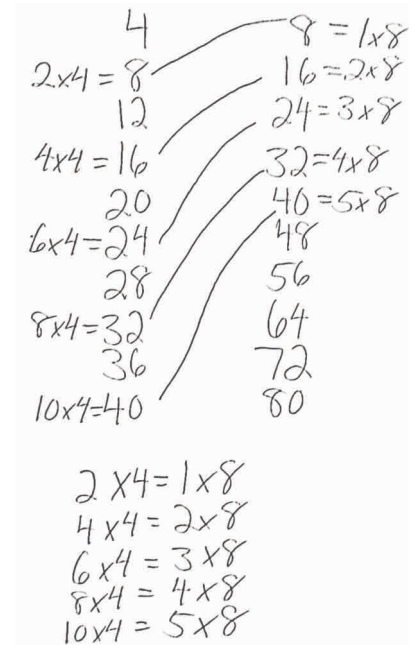 4
2x4 = 8
12
4x4 = 16
20
6x4 = 24
28
8x4 = 32
36
10x4 = 40
8 = 1x8
16 = 2x8
24 = 3x8
32 = 4x8
40 = 5x8
48
56
64
72
80
2 x4 = 1x8
4 x4 = 2x8
6 x4 = 3 x8
8x4 = 4 x8
10x4 = 5x8